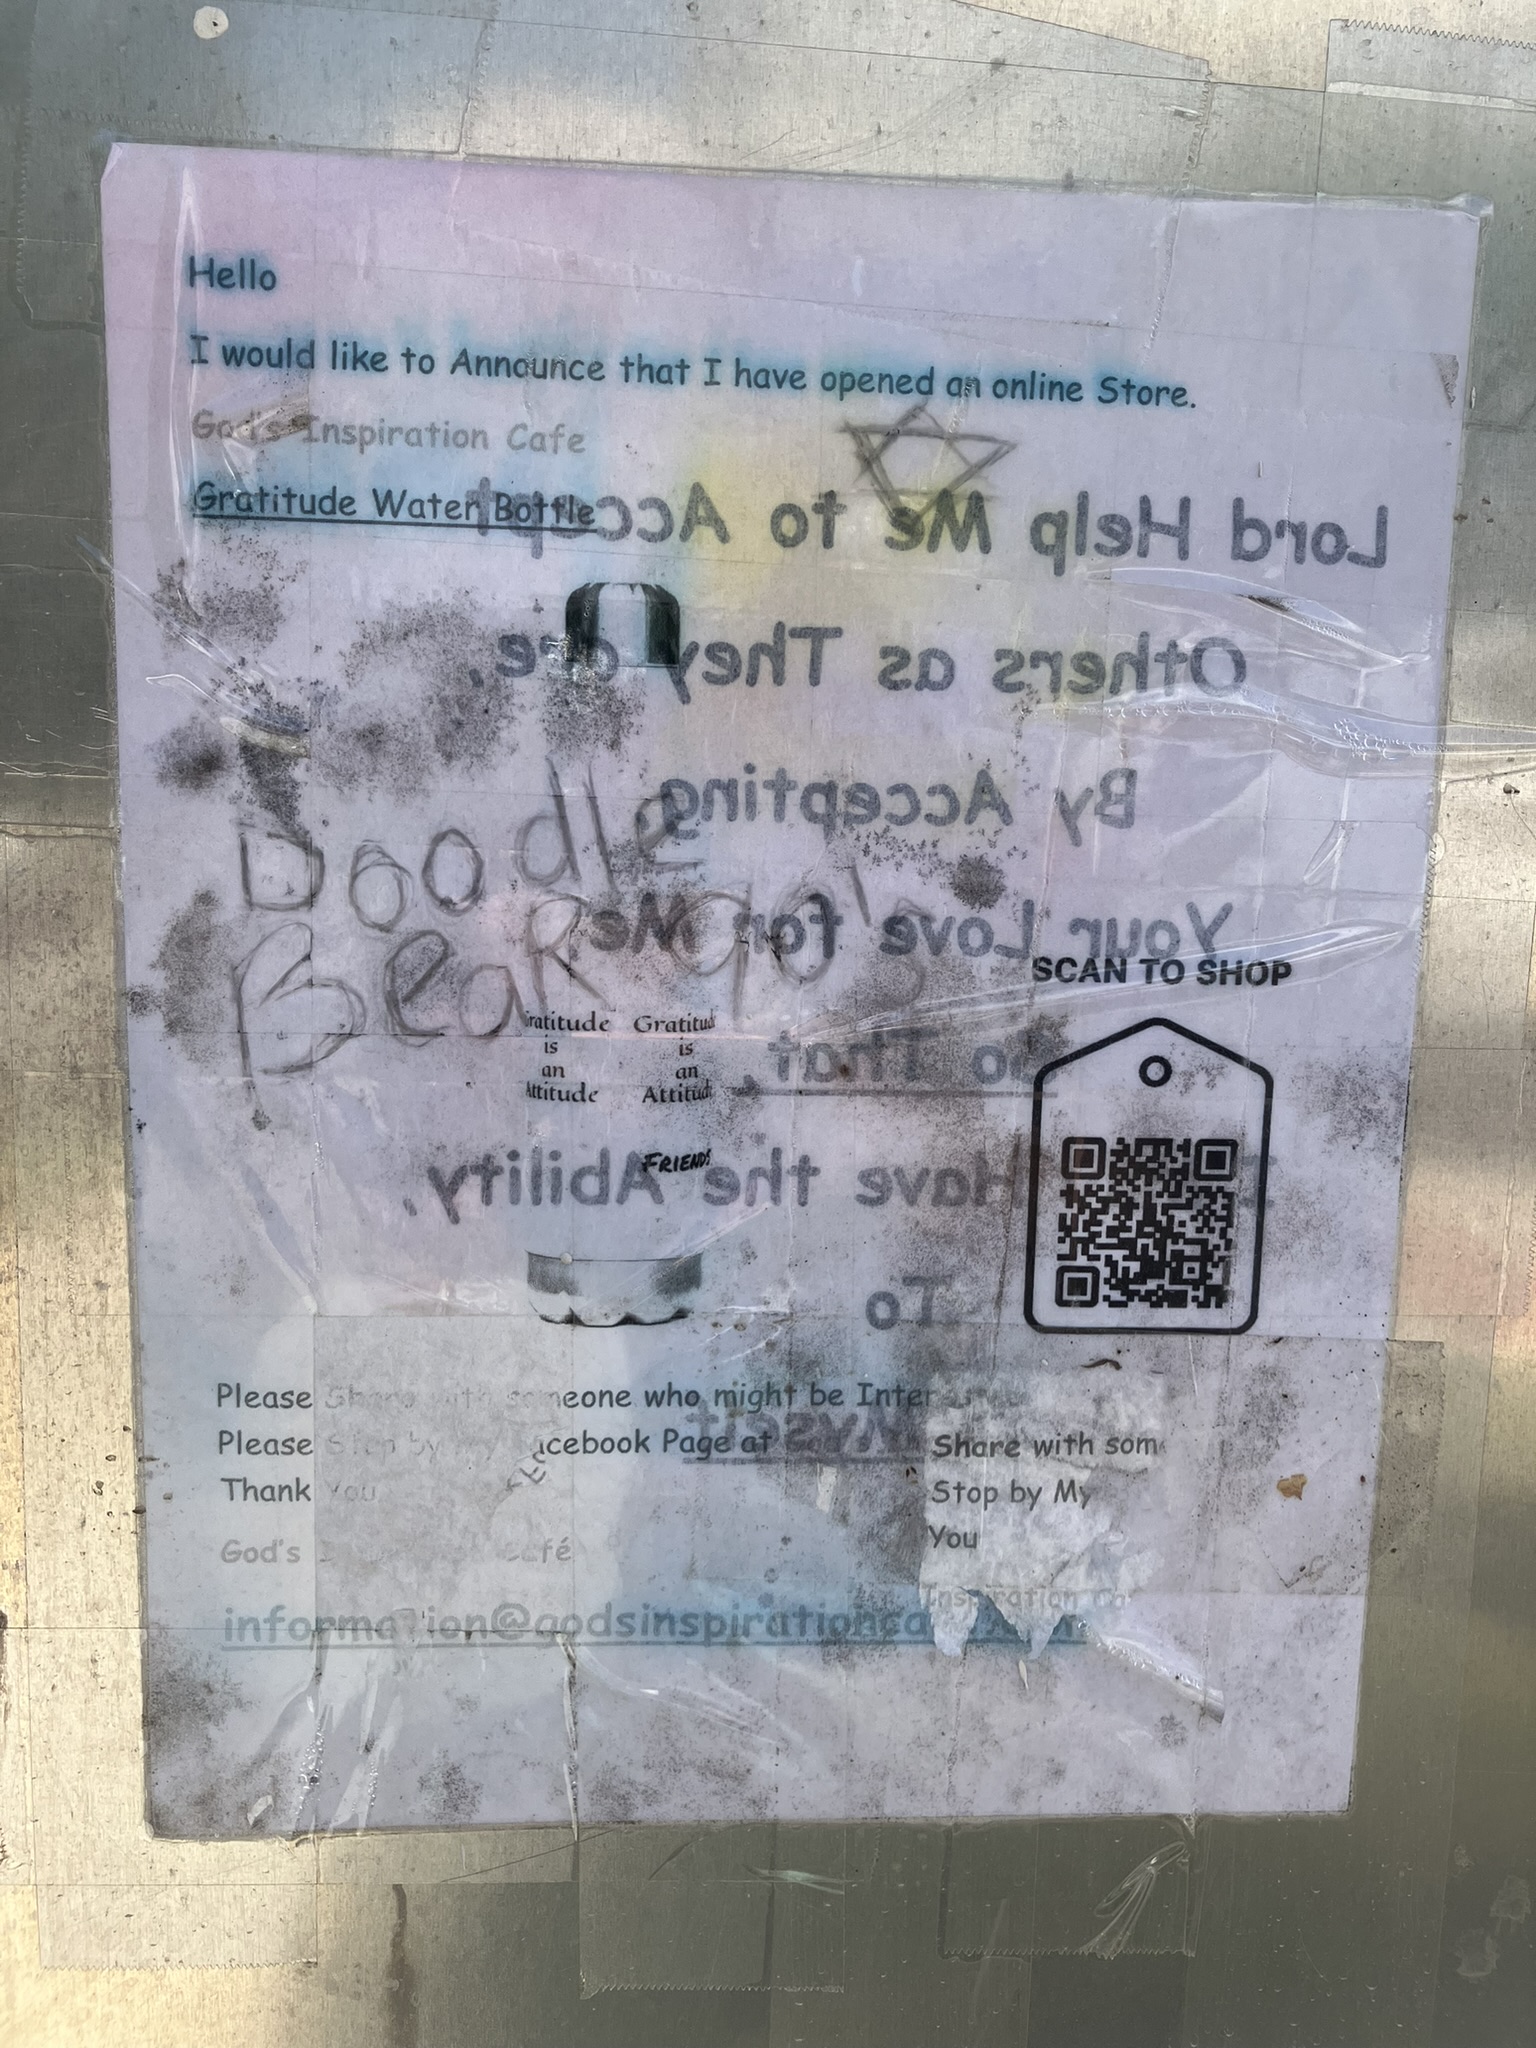 Hello
I would like to Announce that I have opened an online Store.
God's Inspiration Cafe
Gratitude Water Bottle
Lord Help Me to Accept
Others as They are,
By Accepting
Your Love for Me
So That,
Have the Ability,
To
Doodle
Bear
SCAN TO SHOP
ratitude Gratitud
is is
an an
Attitude Attitud
FRIENDS
Please Share with someone who might be Inter
Please Stop by My Facebook Page at
Thank You
God's Café
Share with som
Stop by My
You
Inspiration Caf